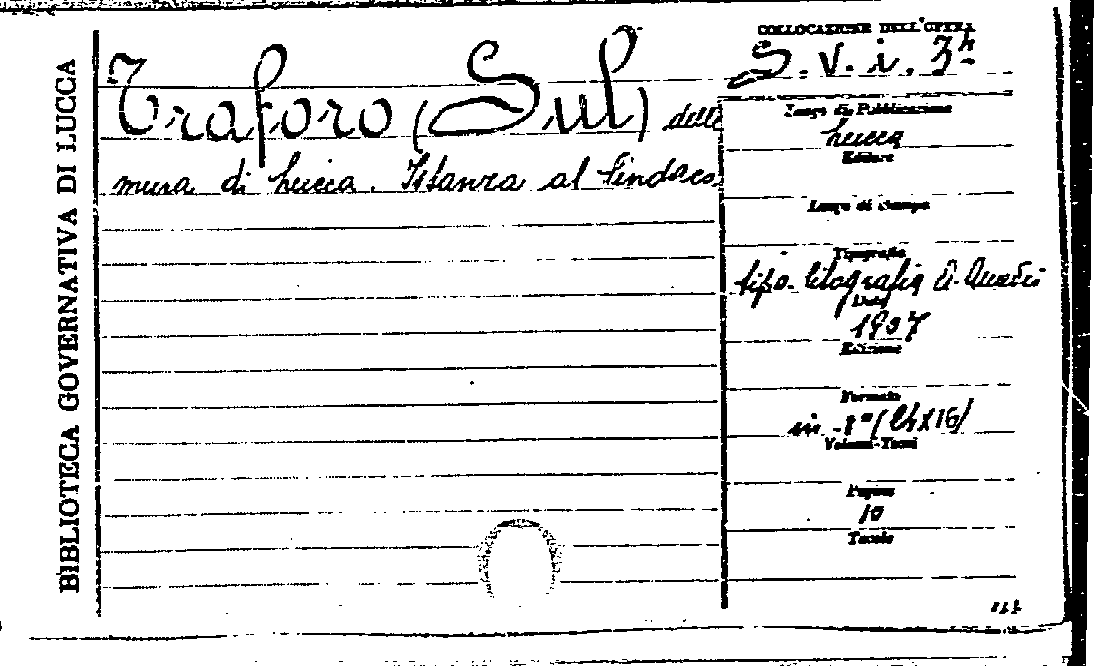 BIBLIOTECA GOVERNATIVA DI LUCCA
Traforo (Sul) delle
mura di Lucca. Istanza al Sindaco.
COLLOCAZIONE DELL'OPERA
S. V. i. 3
Luogo di Pubblicazione
Lucca
Editore
Luogo di Stampa
Tipografia
tipo-litografia
Data
1907
Edizione
Formato
in
Volumi-Tomi
Pagine
10
Tavole